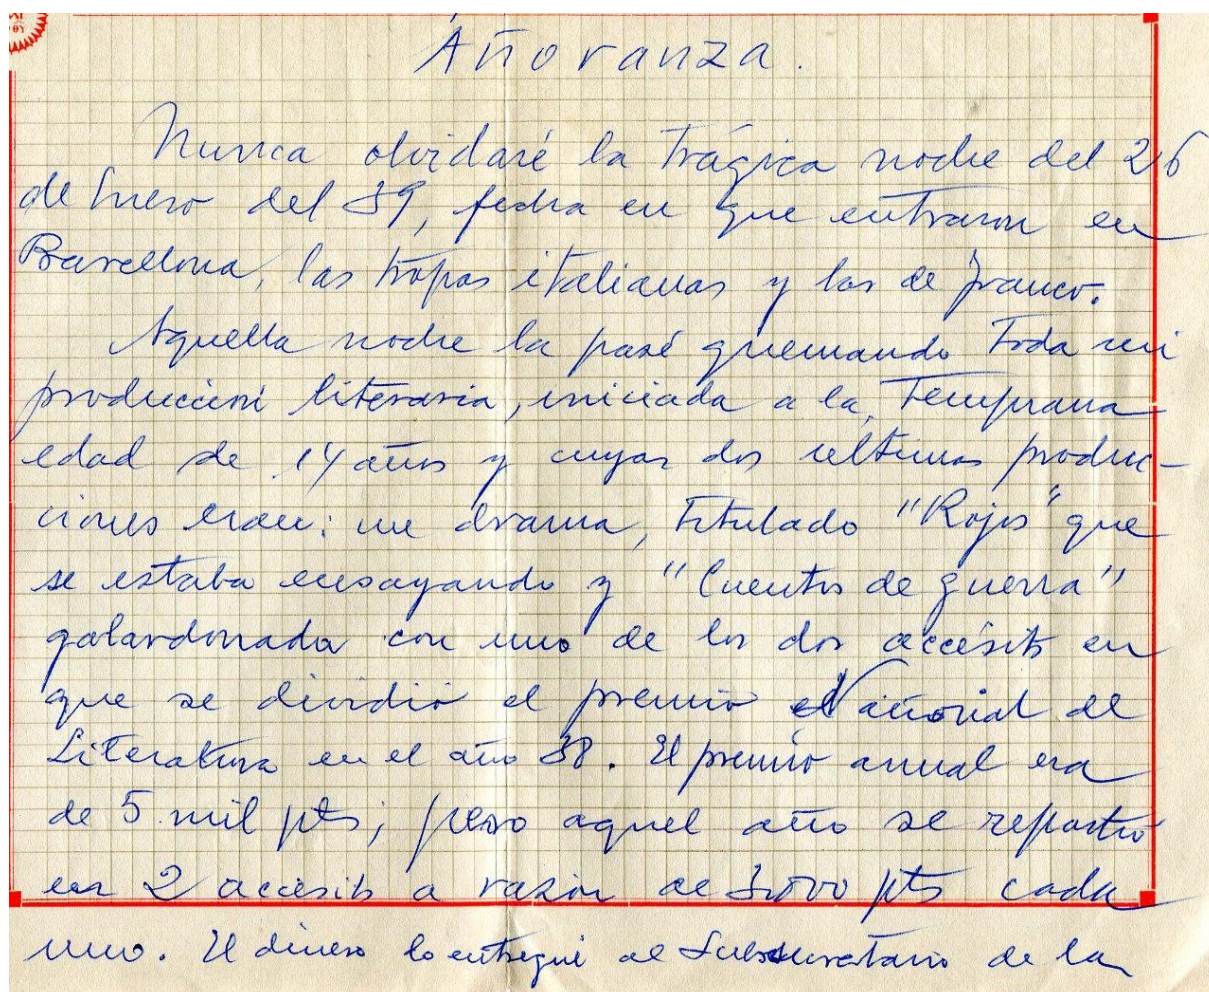 Añoranza.
Nunca olvidaré la trágica noche del 26
de Enero del 39, fecha en que entraron en
Barcelona, las tropas italianas y las de franco.
Aquella noche la pasé quemando toda mi
producción literaria, iniciada a la temprana
edad de 14 años y cuyas dos ultimas produc-
ciones eran: un drama, titulado "Rojos" que
se estaba ensayando y "Cuentos de guerra"
galardonada con uno de los dos accésits en
que se dividió el premio Nacional de
Literatura en el año 38. El premio anual era
de 5 mil pts; pero aquel año se repartió
en 2 accésits a razón de pts cada
uno. El dinero lo entregué al Subsecretario de la